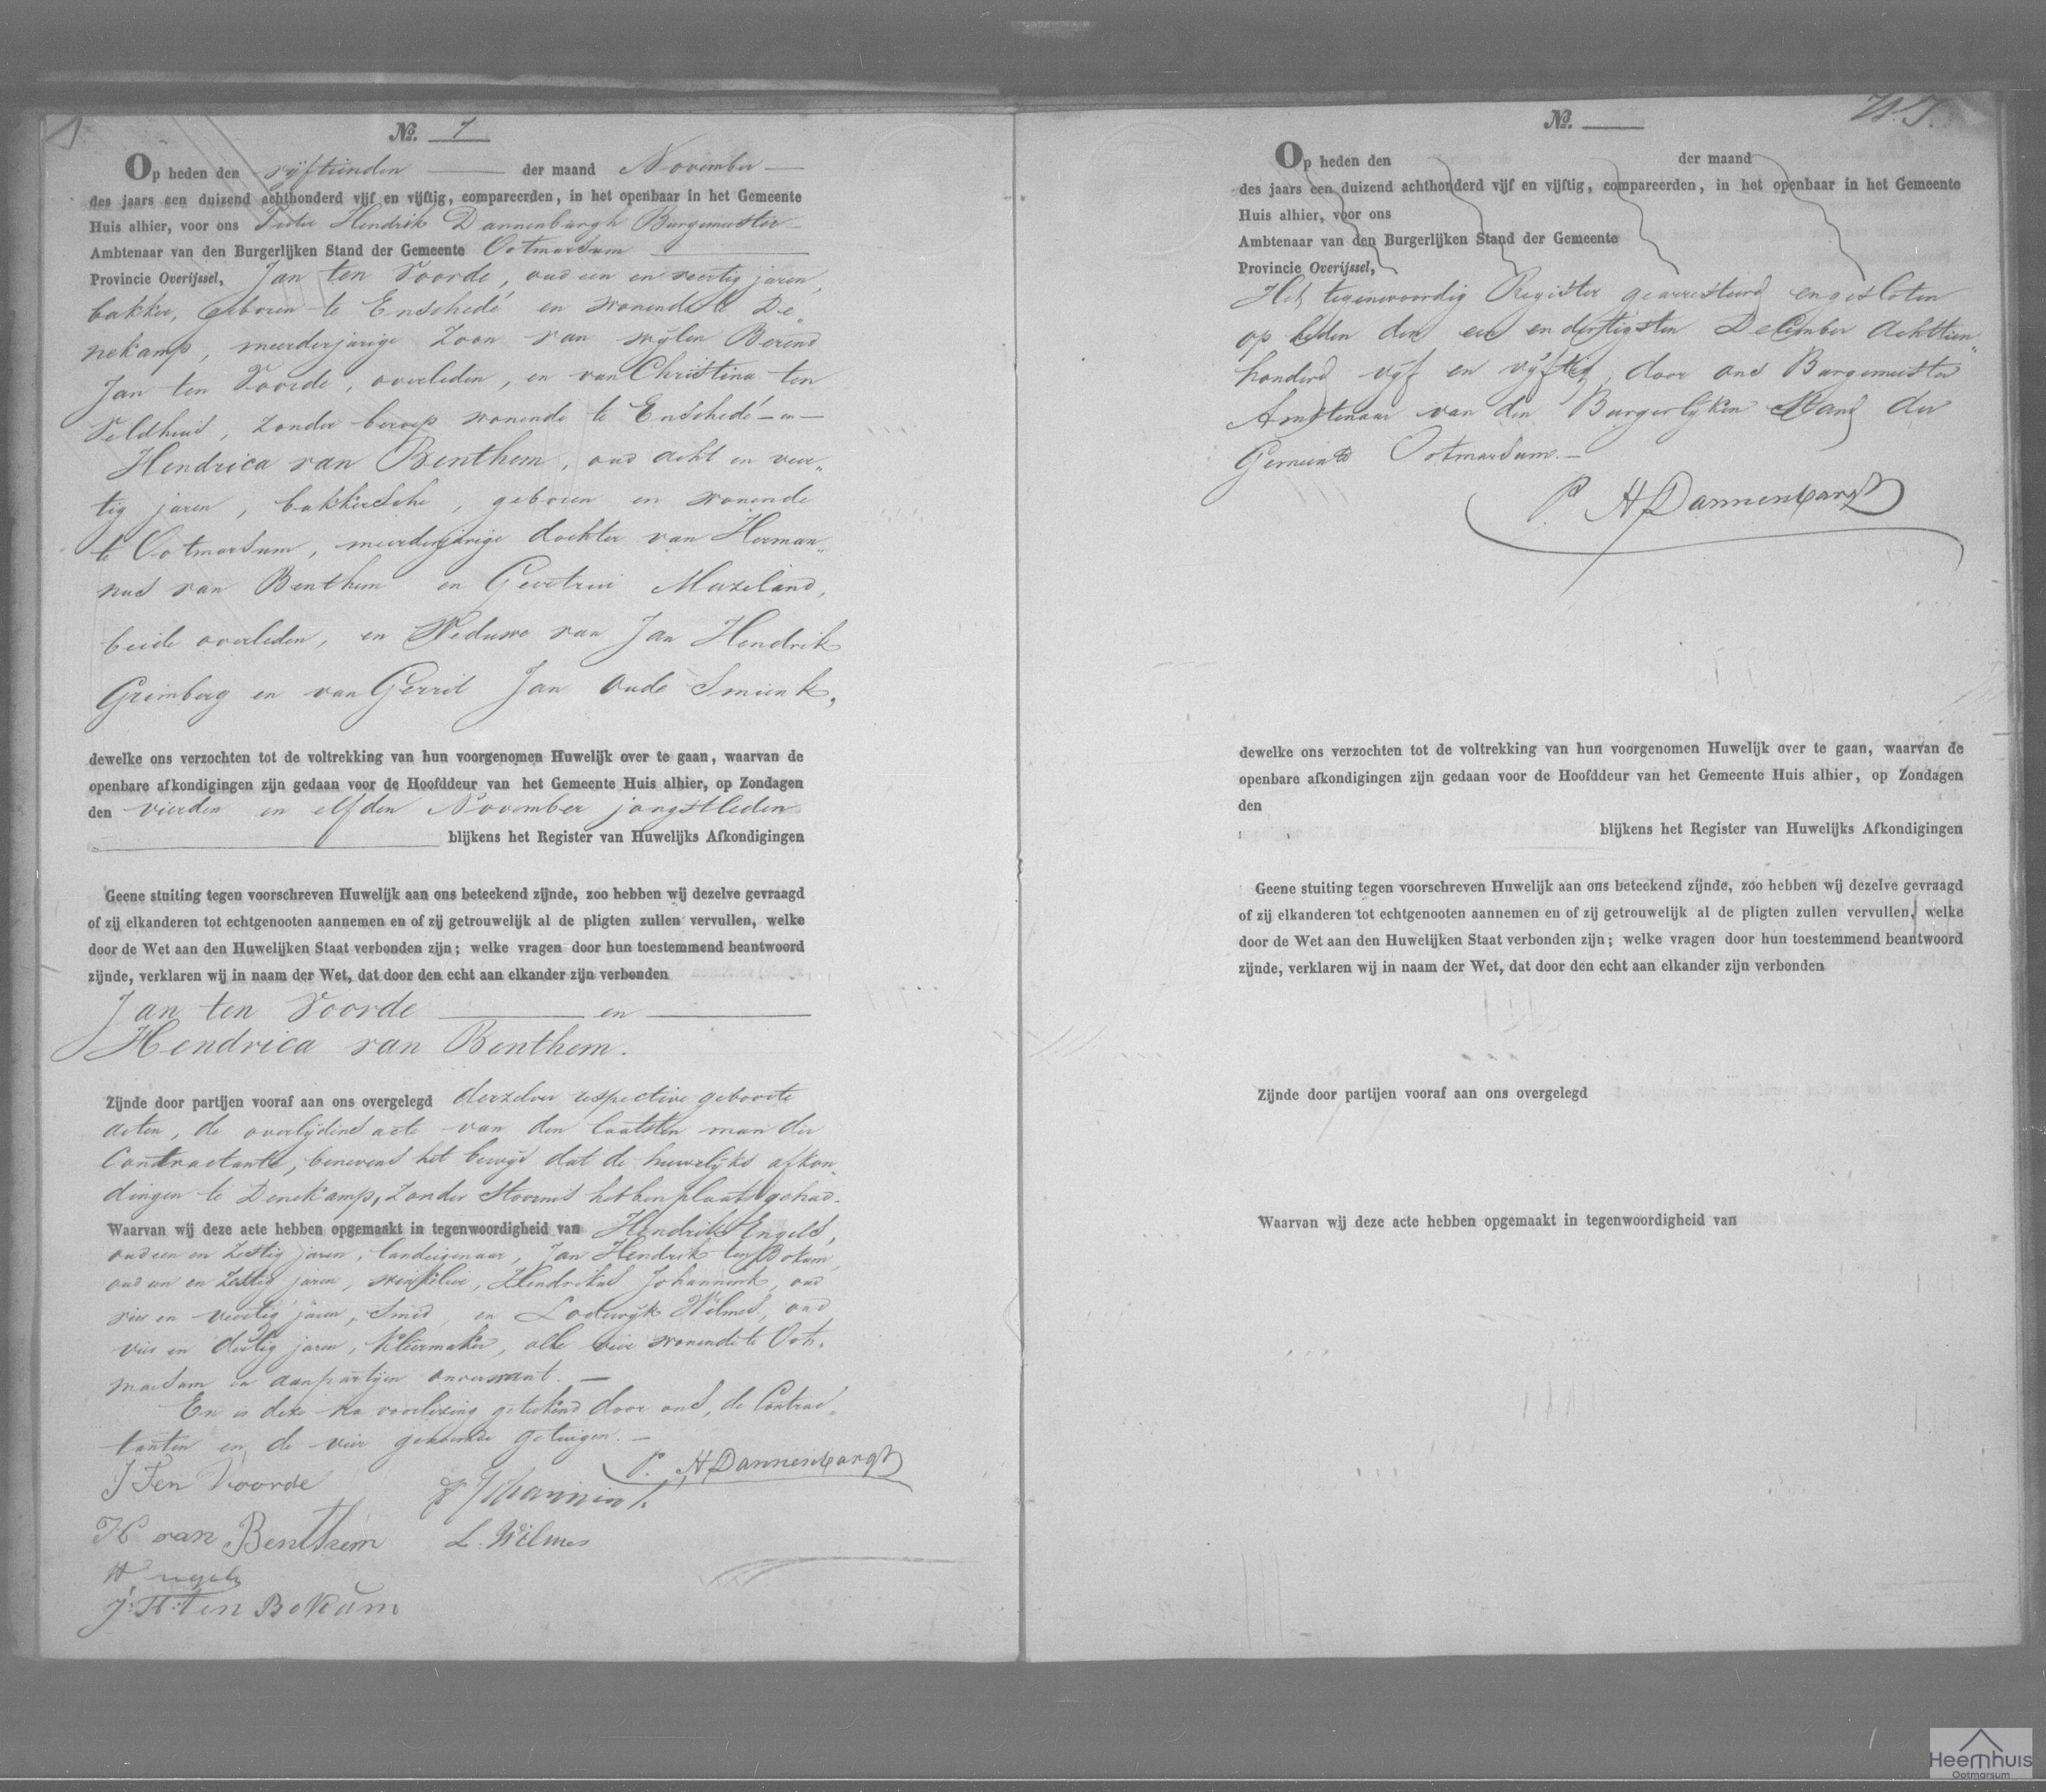 No. 7
Op heden den vijftienden der maand November
des jaars een duizend achthonderd vijf en vijftig, compareerden, in het openbaar in het Gemeente
Huis alhier, voor ons Pieter Hendrik Dannenbargh Burgemeester
Ambtenaar van den Burgerlijken Stand der Gemeente Ootmarsum
Provincie Overijssel, Jan ten Voorde, oud een en veertig jaren,
bakker, geboren te Enschedé en wonende te De„
nekamp, meerderjarige zoon van wijlen Berend
Jan ten Voorde, overleden, en van Christina ten
Veldhuis, zonder beroep wonende te Enschedé – en –
Hendrica van Benthem, oud acht en veer„
tig jaren, bakkersche, geboren en wonende
te Ootmarsum, meerderjarige dochter van Herman„
nus van Benthem en Geertrui Mazeland,
beide overleden, en Weduwe van Jan Hendrik
Grimberg en van Gerrit Jan Oude Smienk,
dewelke ons verzochten tot de voltrekking van hun voorgenomen Huwelijk over te gaan, waarvan de
openbare afkondigingen zijn gedaan voor de Hoofddeur van het Gemeente Huis alhier, op Zondagen
den vierden en elfden November jongstleden
blijkens het Register van Huwelijks Afkondigingen
Geene stuiting tegen voorschreven Huwelijk aan ons beteekend zijnde, zoo hebben wij dezelve gevraagd
of zij elkanderen tot echtgenooten aannemen en of zij getrouwelijk al de pligten zullen vervullen, welke
door de Wet aan den Huwelijken Staat verbonden zijn; welke vragen door hun toestemmend beantwoord
zijnde, verklaren wij in naam der Wet, dat door den echt aan elkander zijn verbonden
Jan ten Voorde en
Hendrica van Benthem.
Zijnde door partijen vooraf aan ons overgelegd derzelver respective geboorte
acten, de overlijdens acte van den laatsten man der
Contractante, benevens het bewijs dat de huwelijks afkon„
dingen te Denekamp, zonder stoornis hebben plaats gehad.
Waarvan wij deze acte hebben opgemaakt in tegenwoordigheid van Hendrik Engels,
oud een en zestig jaren, landeigenaar, Jan Hendrik ten Bokum,
oud een en zestig jaren, winkelier, Hendrikus Johannink, oud
vier en veertig jaren, smid, en Lodewijk Wilmes, oud
vier en dertig jaren, kleermaker, alle vier wonende te Oot„
marsum en aan partijen onverwant. –
En is deze na voorlezing geteekend door ons, de Contrac„
tanten en de vier genoemde getuigen. –
P. H Dannenbargh
J Ten Voorde
H Johannink.
H van Benthem
L. Wilmes
H Engels
J: H: Ten Bokum
No.
Op heden den der maand
des jaars een duizend achthonderd vijf en vijftig, compareerden, in het openbaar in het Gemeente
Huis alhier, voor ons
Ambtenaar van den Burgerlijken Stand der Gemeente
Provincie Overijssel,
Het tegenwoordig Register gearresteerd en gesloten
op heden den een en dertigsten December Achttien„
honderd vijf en vijftig, door ons Burgemeester
Ambtenaar van den Burgerlijken Stand der
Gemeente Ootmarsum. –
P. H Dannenbargh
dewelke ons verzochten tot de voltrekking van hun voorgenomen Huwelijk over te gaan, waarvan de
openbare afkondigingen zijn gedaan voor de Hoofddeur van het Gemeente Huis alhier, op Zondagen
den
blijkens het Register van Huwelijks Afkondigingen
Geene stuiting tegen voorschreven Huwelijk aan ons beteekend zijnde, zoo hebben wij dezelve gevraagd
of zij elkanderen tot echtgenooten aannemen en of zij getrouwelijk al de pligten zullen vervullen, welke
door de Wet aan den Huwelijken Staat verbonden zijn; welke vragen door hun toestemmend beantwoord
zijnde, verklaren wij in naam der Wet, dat door den echt aan elkander zijn verbonden
Zijnde door partijen vooraf aan ons overgelegd
Waarvan wij deze acte hebben opgemaakt in tegenwoordigheid van
Heemhuis
Ootmarsum